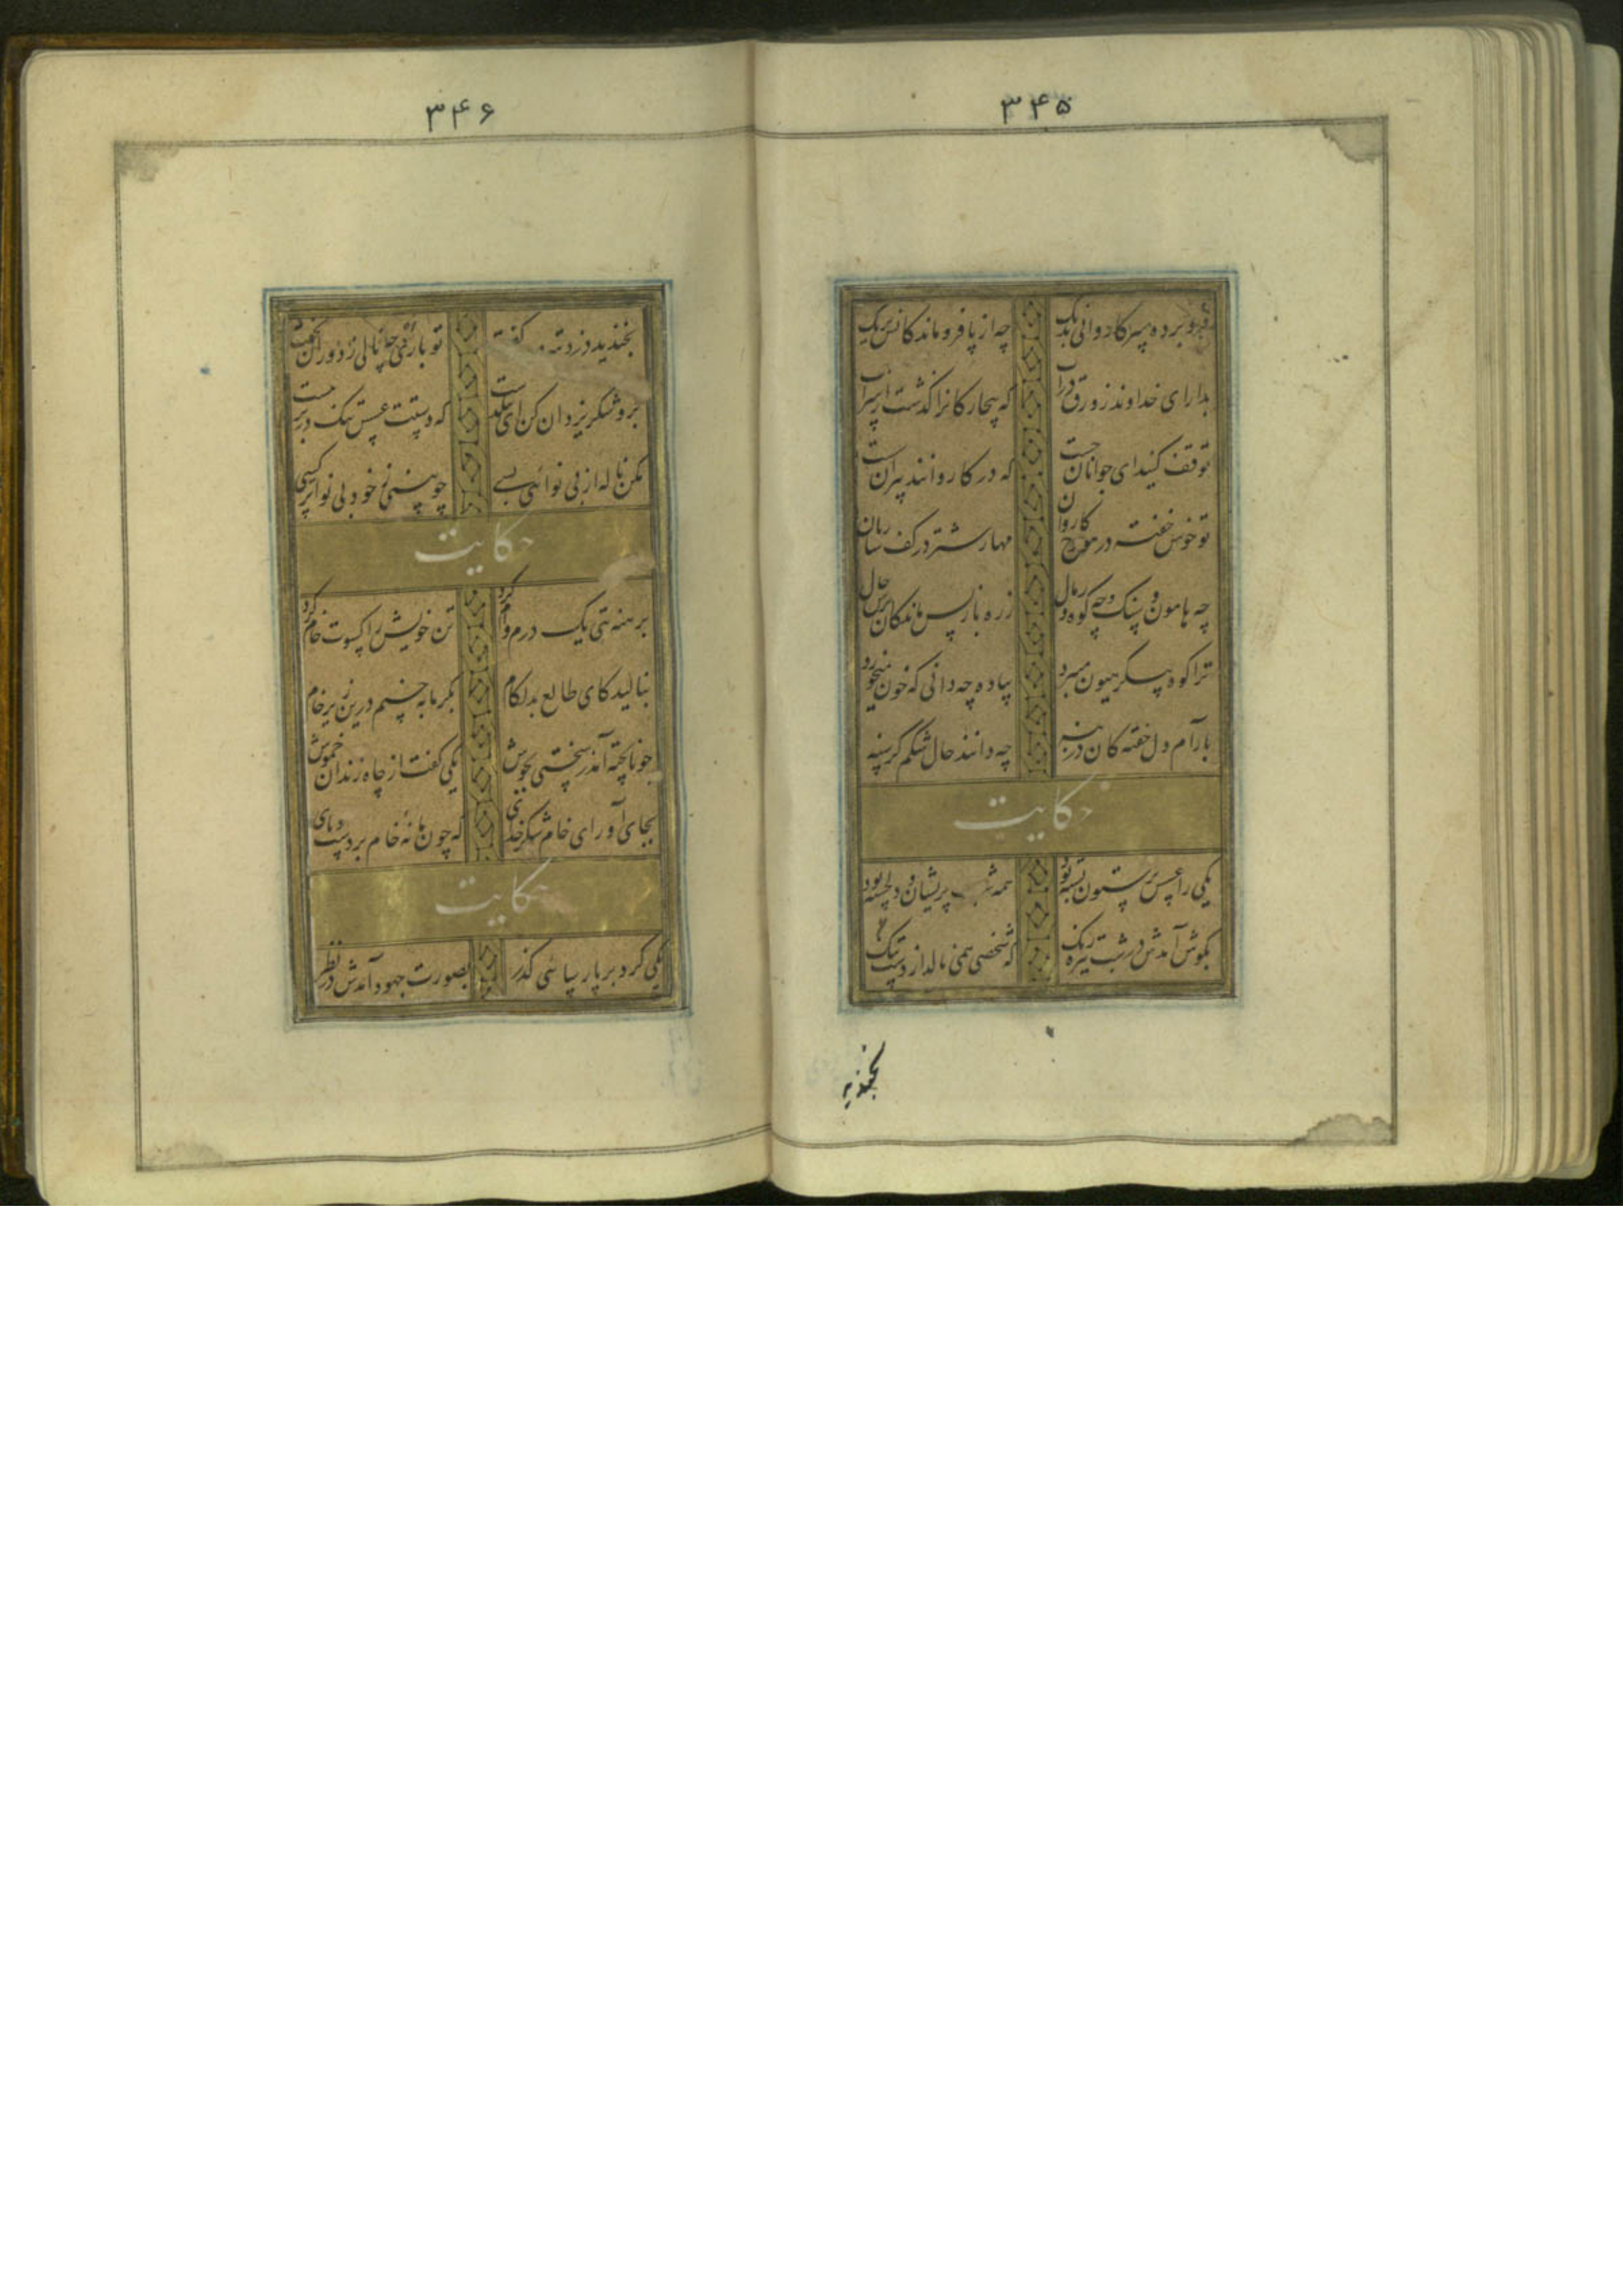 ۳۴۵
فرو برده سر کاروانی بدیک
چه از پا فرو ماندکانش بریک
بدار ای خداوند زورق در آب
که بیچارکانرا کذشت از سر آب
توقف کنید ای جوانان چست
که در کاروانند پیران سست
تو خوش خفته در هودج کاروان
مهار شتر در کف ساربان
چه هامون و سنک و چه کوه و رمال
ز ره باز پس ماندکان پرس حال
ترا کوه پیکر هیون میبرد
پیاده چه دانی که خون میخورد
بآرام دل خفته کان در بنه
چه دانند حال شکم کرسنه
حکایت
یکی را عسس بر ستون بسته بود
همه شب پریشان و دلخسته بود
بکوش آمدش در شب تیره رنک
که شخصی همی نالد از دست تنک
بخندید
۳۴۶
بخندید دزد گفت
تو باری ز دوران بخفت
برو شکر یزدان کن ای تنکدست
که دستت عسس تنک بر هم نبست
مکن ناله از بی نوائی بسی
چو بینی ز خود بی نواتر کسی
حکایت
برهنه تنی یک درم وام کرد
تن خویش را کسوت خام کرد
بنالید کای طالع بدلکام
بکرما بپختم درین زیر خام
چو ناپخته آمد ز سختی بجوش
یکی کفت از چاه زندان خموش
بجای آور ای خام شکر خدای
که چون ما نهٔ خام بر دست و پای
حکایت
یکی کرد بر پارسائی کذر
بصورت جهود آمدش در نظر